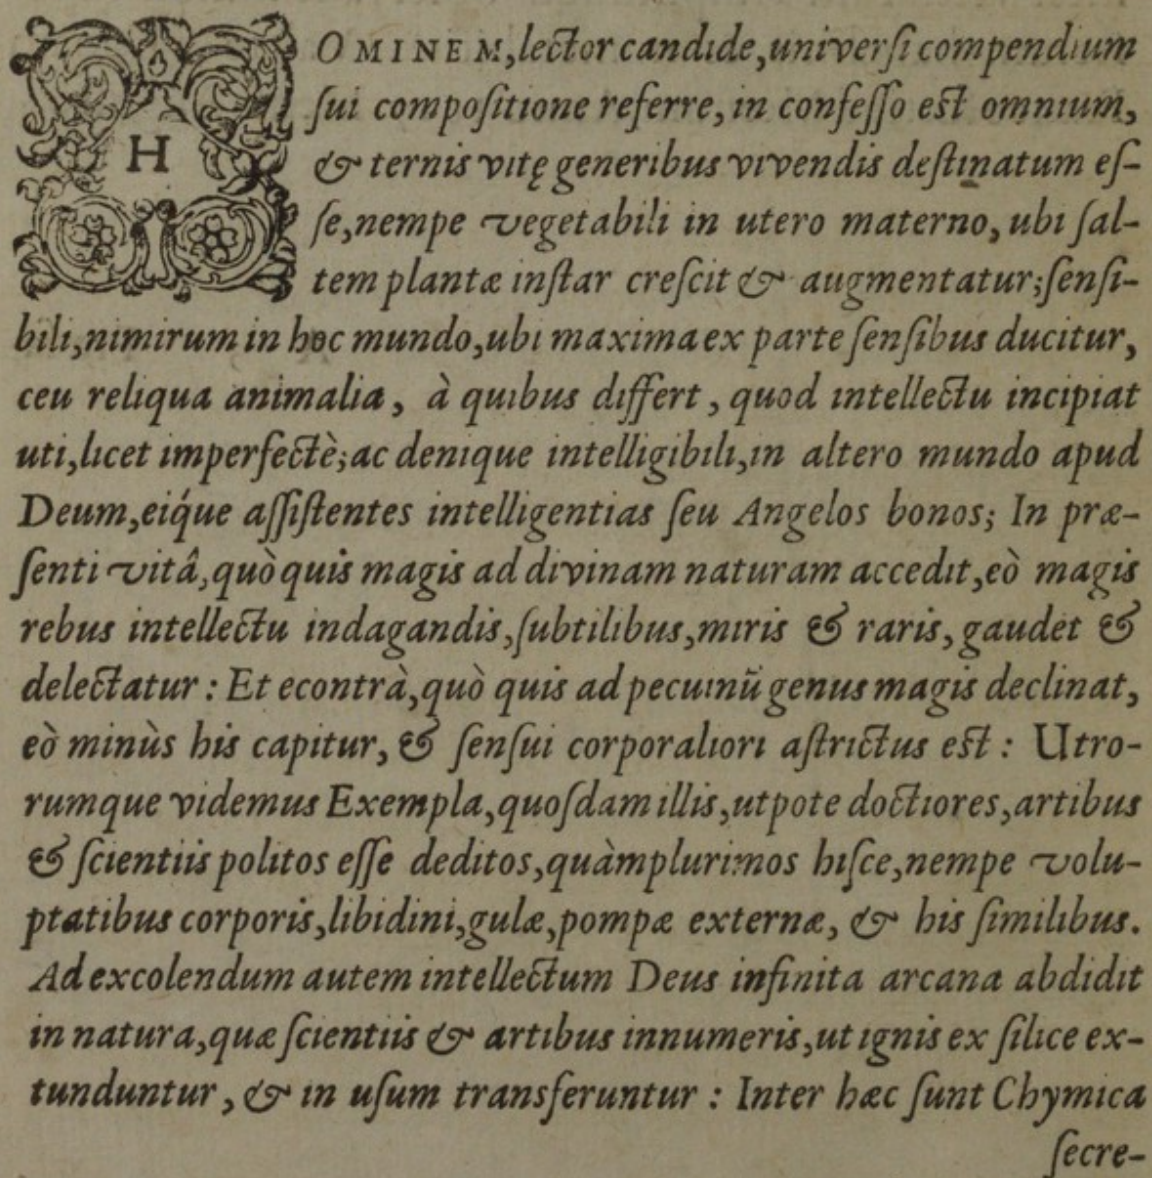 HOMINEM, lector candide, universi compendium
sui compositione referre, in confesso est omnium,
& ternis vitę generibus vivendis destinatum es-
se, nempe vegetabili in utero materno, ubi sal-
tem plantæ instar crescit & augmentatur; sensi-
bili, nimirum in hoc mundo, ubi maxima ex parte sensibus ducitur,
ceu reliqua animalia, à quibus differt, quod intellectu incipiat
uti, licet imperfectè; ac denique intelligibili, in altero mundo apud
Deum, eiq́ue assistentes intelligentias seu Angelos bonos; In præ-
senti vitâ, quò quis magis ad divinam naturam accedit, eò magis
rebus intellectu indagandis, subtilibus, miris & raris, gaudet &
delectatur: Et econtrà, quò quis ad pecuinũ genus magis declinat,
eò minùs his capitur, & sensui corporaliori astrictus est: Utro-
rumque videmus Exempla, quosdam illis, utpote doctiores, artibus
& scientiis politos esse deditos, quàmplurimos hisce, nempe volu-
ptatibus corporis, libidini, gulæ, pompæ externæ, & his similibus.
Ad excolendum autem intellectum Deus infinita arcana abdidit
in natura, quæ scientiis & artibus innumeris, ut ignis ex silice ex-
tunduntur, & in usum transferuntur: Inter hæc sunt Chymica
secre-